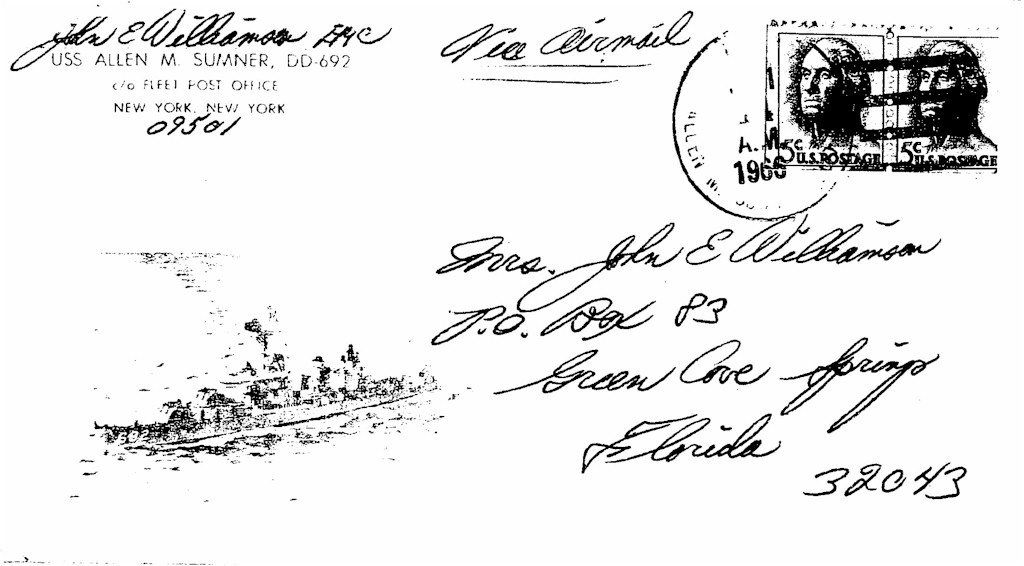 John E Williamson EMC
USS ALLEN M. SUMNER, DD-692
c/o FLEET POST OFFICE
NEW YORK, NEW YORK
09501
Via Airmail
ALLEN M.
A.M.
1966
5c
U.S. POSTAGE
5c
U.S. POSTAGE
Mrs. John E Williamson
P.O. Box 83
Green Cove Springs
Florida
32043